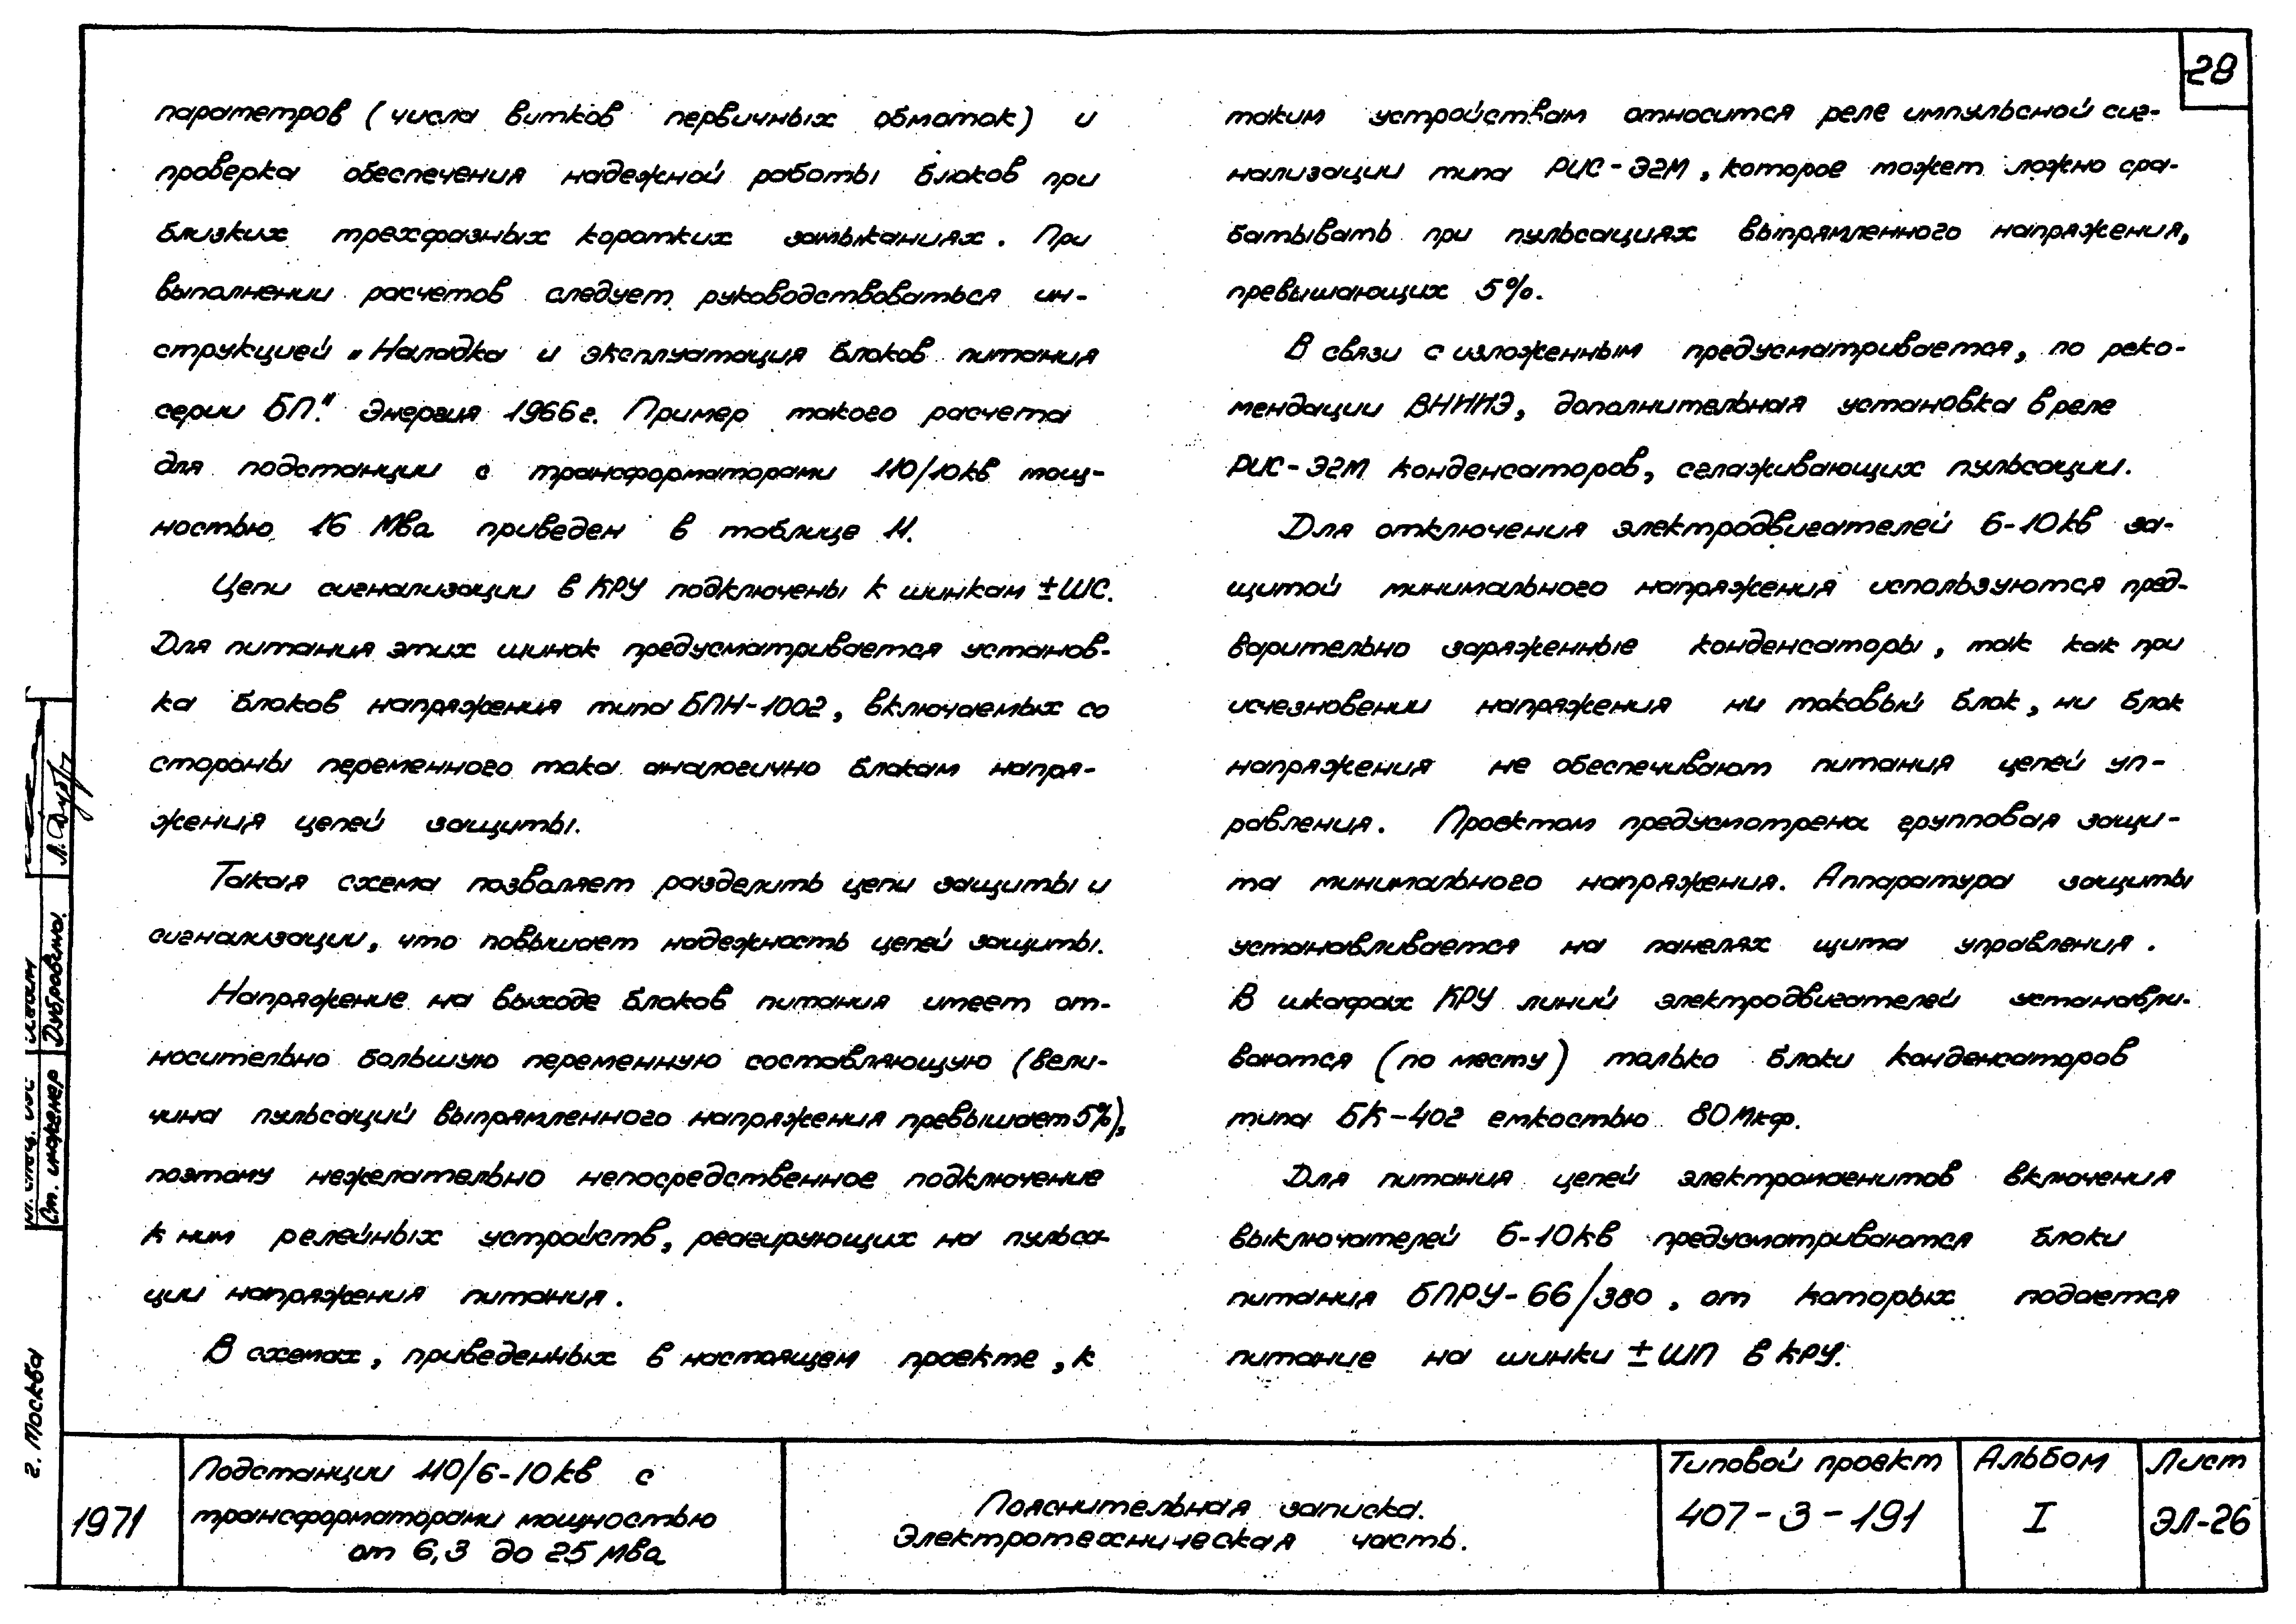 28
параметров (числа витков первичных обмоток) и
проверка обеспечения надежной работы блоков при
близких трехфазных коротких замыканиях. При
выполнении расчетов следует руководствоваться ин-
струкцией „Наладка и эксплуатация блоков питания
серии БП." Энергия 1966г. Пример такого расчета
для подстанции с трансформаторами 110/10кв мощ-
ностью 16 Мва приведен в таблице 11.
Цепи сигнализации в КРУ подключены к шинкам ±ШС.
Для питания этих шинок предусматривается установ-
ка блоков напряжения типа БПН-1002, включаемых со
стороны переменного тока аналогично блокам напря-
жения цепей защиты.
Такая схема позволяет разделить цепи защиты и
сигнализации, что повышает надежность цепей защиты.
Напряжение на выходе блоков питания имеет от-
носительно большую переменную составляющую (вели-
чина пульсаций выпрямленного напряжения превышает 5%),
поэтому нежелательно непосредственное подключение
к ним релейных устройств, реагирующих на пульса-
ции напряжения питания.
В схемах, приведенных в настоящем проекте, к
таким устройствам относится реле импульсной сиг-
нализации типа РИС-Э2М, которое может ложно сра-
батывать при пульсациях выпрямленного напряжения,
превышающих 5%.
В связи с изложенным предусматривается, по реко-
мендации ВНИИЭ, дополнительная установка в реле
РИС-Э2М конденсаторов, сглаживающих пульсации.
Для отключения электродвигателей 6-10кв за-
щитой минимального напряжения используются пред-
варительно заряженные конденсаторы, так как при
исчезновении напряжения ни токовый блок, ни блок
напряжения не обеспечивают питания цепей уп-
равления. Проектом предусмотрена групповая защи-
та минимального напряжения. Аппаратура защиты
устанавливается на панелях щита управления.
В шкафах КРУ линий электродвигателей устанавли-
ваются (по месту) только блоки конденсаторов
типа БК-402 емкостью 80 Мкф.
Для питания цепей электромагнитов включения
выключателей 6-10кв предусматриваются блоки
питания БПРУ-66/380, от которых подается
питание на шинки ±ШП в КРУ.
Ст. инженер Дубровина Л. Дуб
г. Москва
1971
Подстанции 110/6-10кв с
трансформаторами мощностью
от 6,3 до 25 Мва
Пояснительная записка.
Электротехническая часть.
Типовой проект
407-3-191
Альбом
I
Лист
ЭЛ-26